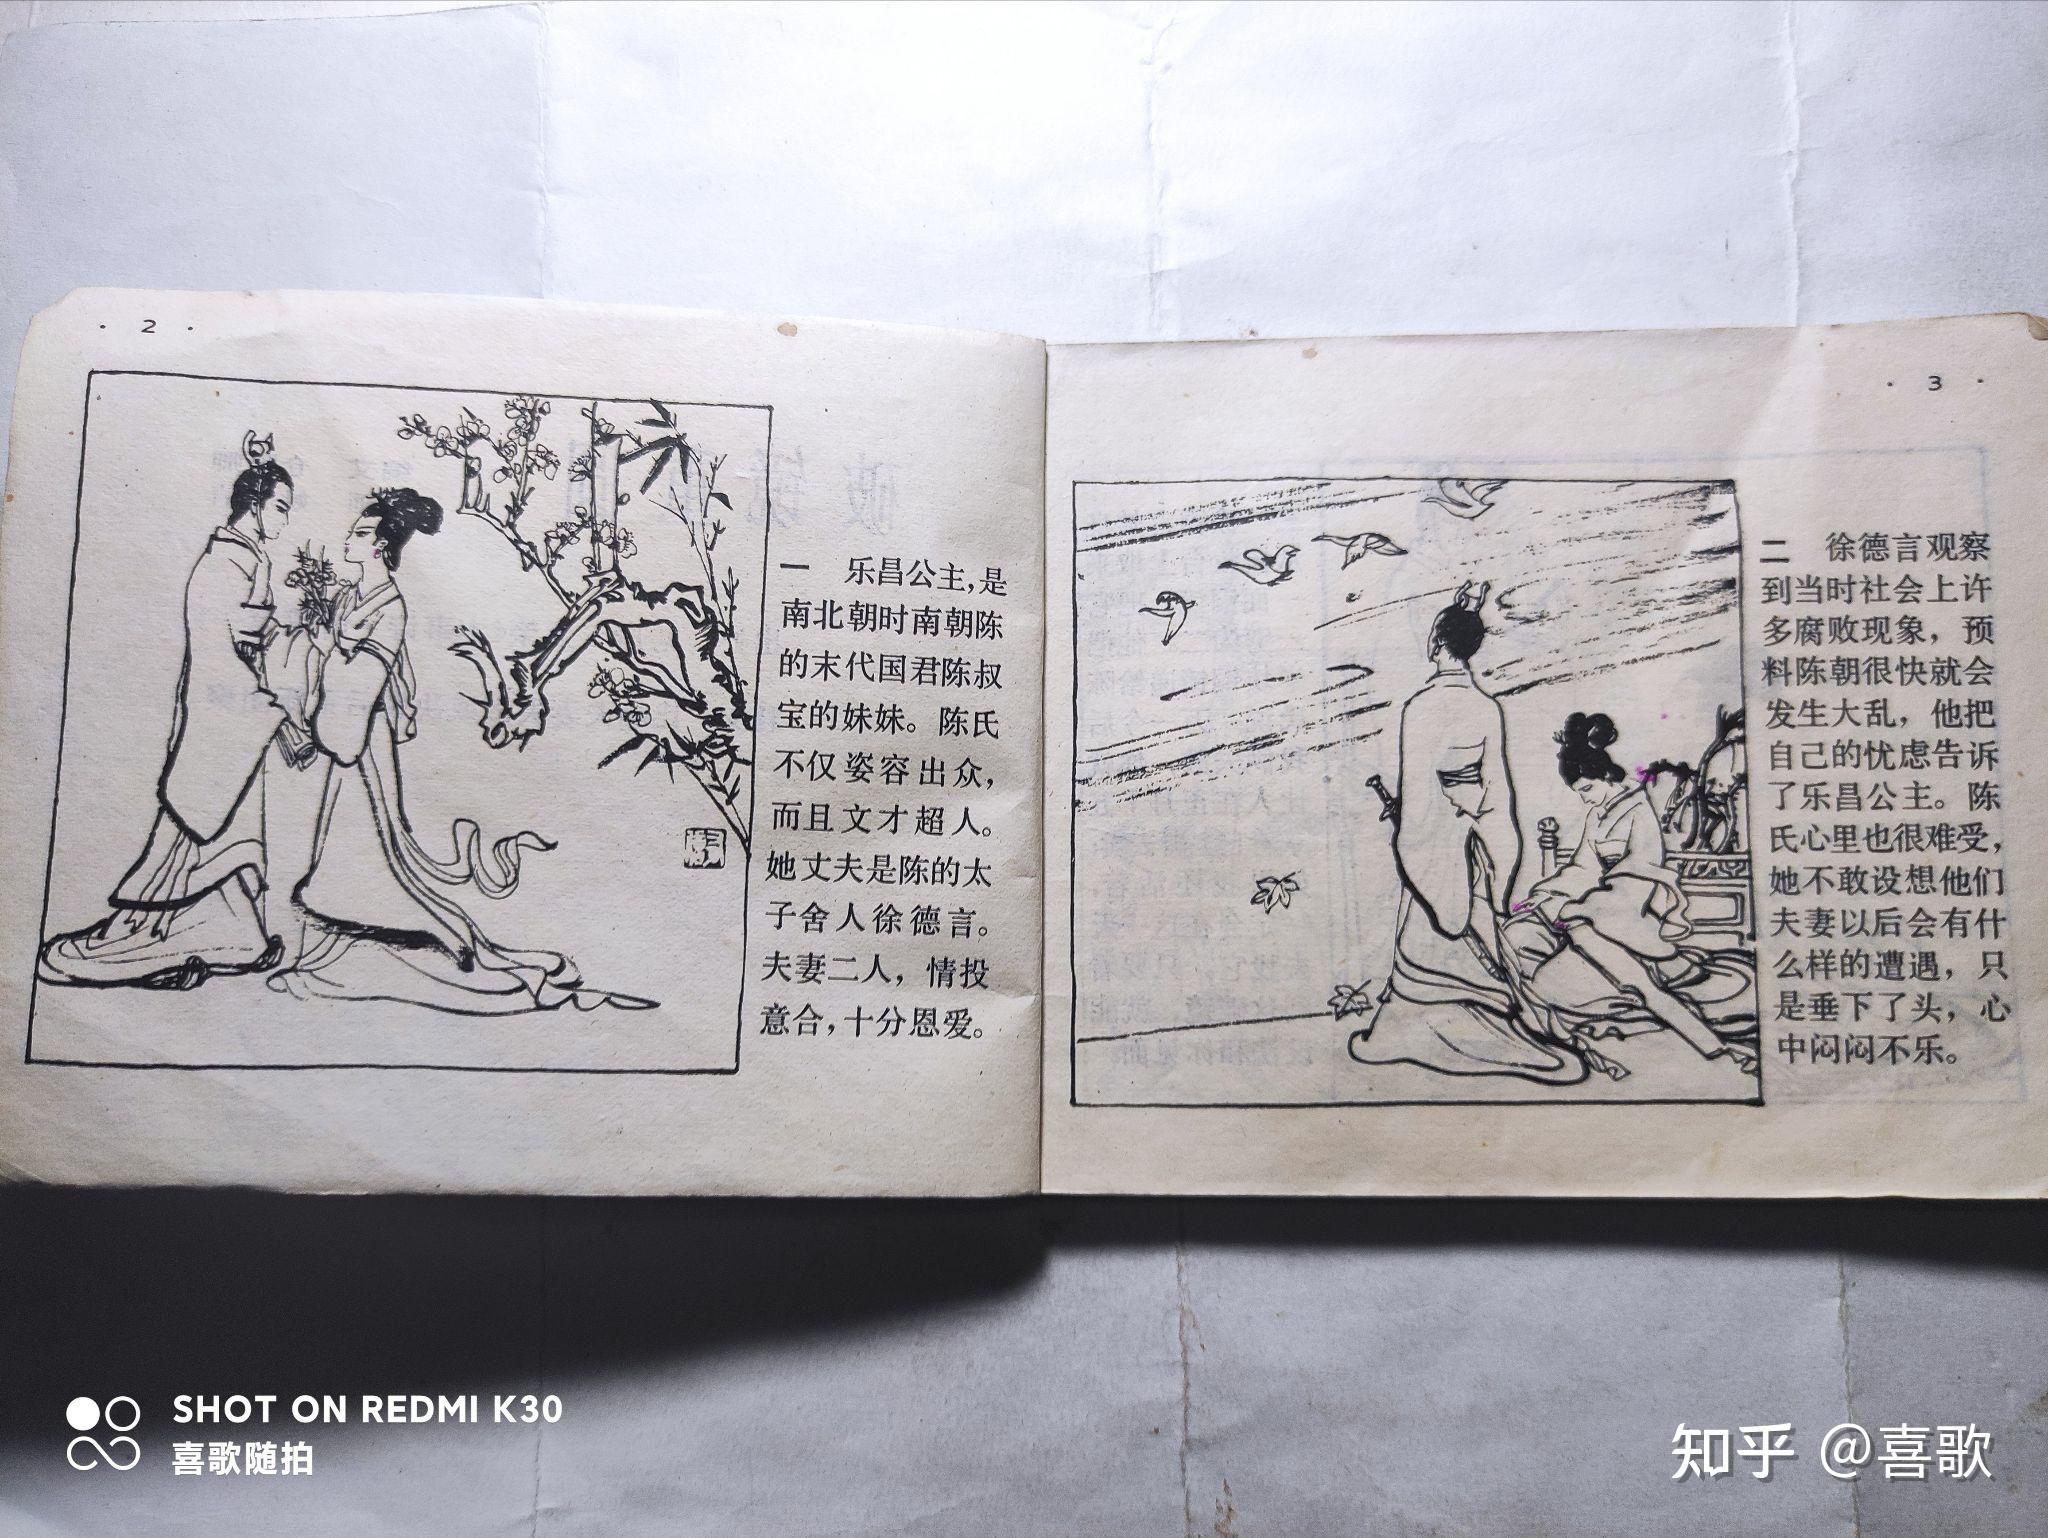 · 2 ·
一 乐昌公主,是
南北朝时南朝陈
的末代国君陈叔
宝的妹妹。陈氏
不仅姿容出众,
而且文才超人。
她丈夫是陈的太
子舍人徐德言。
夫妻二人,情投
意合,十分恩爱。
· 3 ·
二 徐德言观察
到当时社会上许
多腐败现象，预
料陈朝很快就会
发生大乱，他把
自己的忧虑告诉
了乐昌公主。陈
氏心里也很难受，
她不敢设想他们
夫妻以后会有什
么样的遭遇，只
是垂下了头，心
中闷闷不乐。
SHOT ON REDMI K30
喜歌随拍
知乎 @喜歌